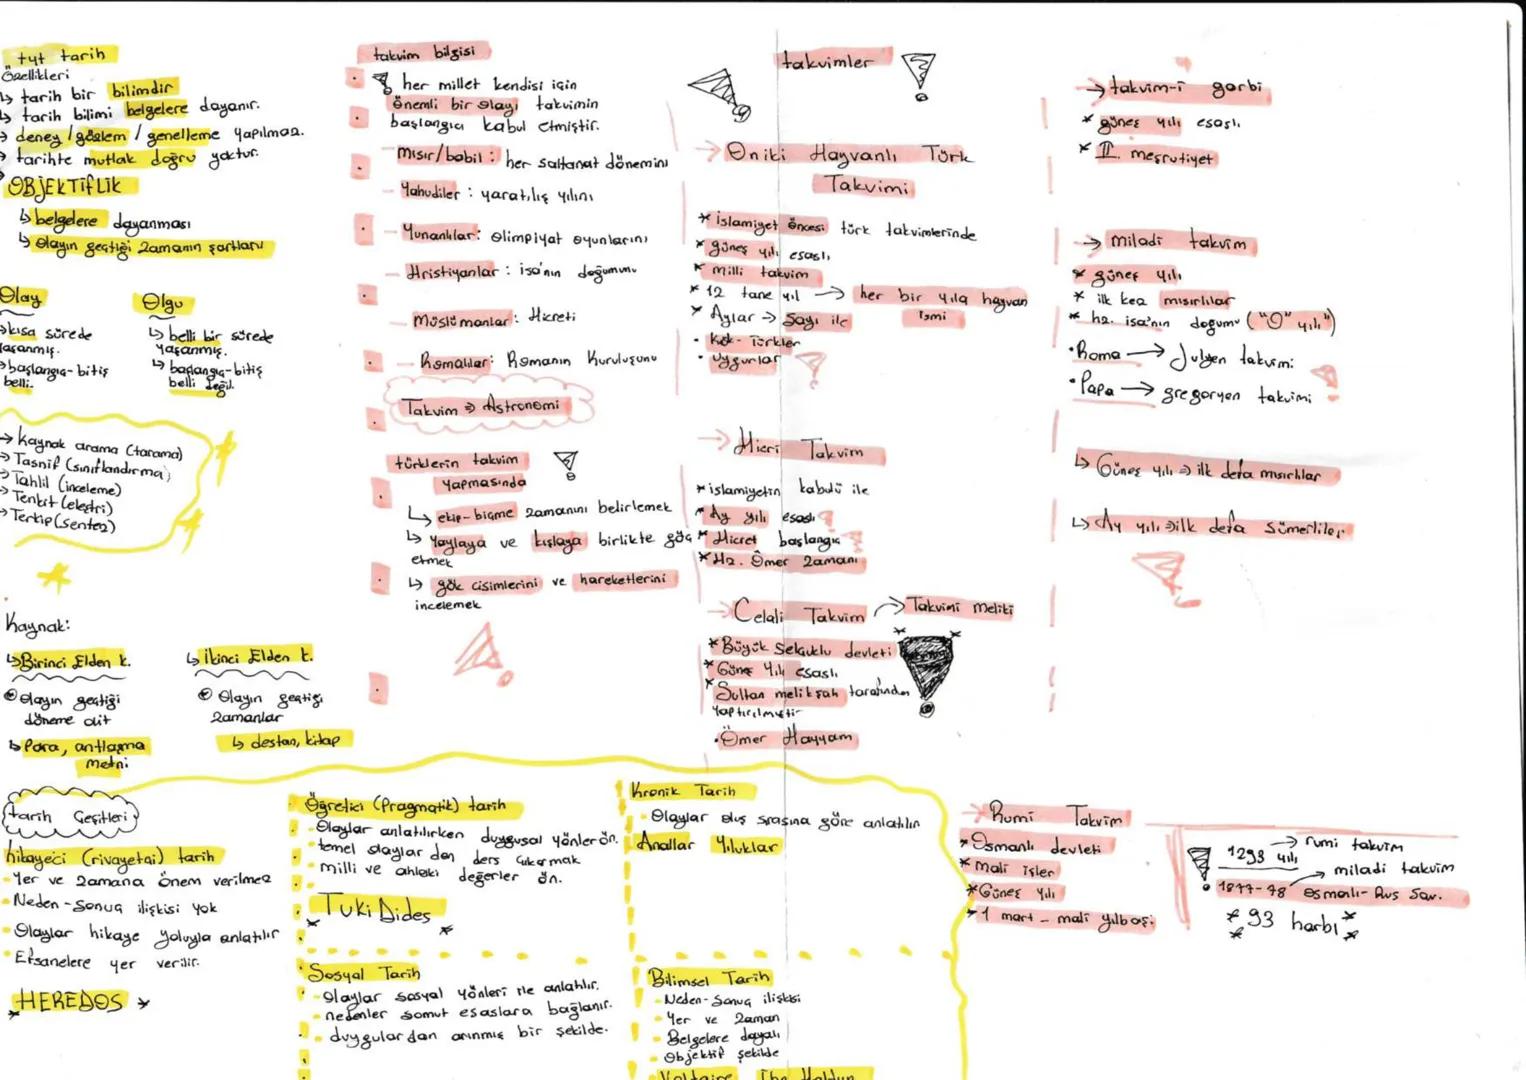 tyt tarih
Özellikleri
↳ tarih bir bilimdir
↳ tarih bilimi belgelere dayanır.
→ deney / gözlem / genelleme yapılmaz.
→ tarihte mutlak doğru yoktur.
OBJEKTİFLİK
↳ belgelere dayanması
↳ olayın geçtiği zamanın şartları
Olay
→ kısa sürede
yaşanmış.
→ başlangıç-bitiş
belli.
Olgu
↳ belli bir sürede
yaşanmış.
↳ başlangıç-bitiş
belli değil.
→ kaynak arama (tarama)
→ Tasnif (sınıflandırma)
→ Tahlil (inceleme)
→ Tenkit (eleştri)
→ Terkip (sentez)
Kaynak:
↳ Birinci Elden k.
Olayın geçtiği
döneme ait
↳ Para, antlaşma
metni
↳ İkinci Elden k.
Olayın geçtiği
zamanlar
↳ destan, kitap
takvim bilgisi
her millet kendisi için
önemli bir olayı takvimin
başlangıcı kabul etmiştir.
mısır/babil : her saltanat dönemini
Yahudiler : yaratılış yılını
Yunanlılar: olimpiyat oyunlarını
Hristiyanlar : isa'nın doğumunu
Müslümanlar: Hicreti
Romalılar: Romanın Kuruluşunu
Takvim ⇒ Astronomi
türklerin takvim
yapmasında
↳ ekip-biçme zamanını belirlemek
↳ yaylaya ve kışlaya birlikte göç
etmek
↳ gök cisimlerini ve hareketlerini
incelemek
takvimler
→ Oniki Hayvanlı Türk
Takvimi
* islamiyet öncesi türk takvimlerinde
* güneş yılı esaslı
* milli takvim
* 12 tane yıl → her bir yıla hayvan
ismi
* Aylar → Sayı ile
• Kök-Türkler
• Uygurlar
→ Hicri Takvim
* islamiyetin kabulü ile
* Ay yılı esaslı
* Hicret başlangıç
* Hz. Ömer zamanı
→ Celali Takvim → Takvimi meliki
* Büyük Selçuklu devleti
* Güneş Yılı esaslı
* Sultan melikşah tarafından
yaptırılmıştır
• Ömer Hayyam
→ takvim-i garbi
* güneş yılı esaslı
* II. meşrutiyet
→ miladi takvim
* güneş yılı
* ilk kez mısırlılar
* hz. isa'nın doğumu ("0" yılı")
• Roma → Julyen takvimi
• Papa → gregoryen takvimi
↳ Güneş yılı ⇒ ilk defa mısırlılar
↳ Ay yılı ⇒ ilk defa Sümerliler
tarih Çeşitleri
hikayeci (rivayetçi) tarih
- Yer ve zamana önem verilmez
- Neden-Sonuç ilişkisi yok
- Olaylar hikaye yoluyla anlatılır
- Efsanelere yer verilir.
* HEREDOS *
Öğretici (Pragmatik) tarih
- Olaylar anlatılırken duygusal yönler ön.
- temel olaylar dan ders çıkarmak
- milli ve ahlaki değerler ön.
Tuki Dides
Kronik Tarih
- Olaylar oluş sırasına göre anlatılır
Anallar Yıllıklar
Sosyal Tarih
- Olaylar sosyal yönleri ile anlatılır.
- nedenler somut esaslara bağlanır.
- duygulardan arınmış bir şekilde.
Bilimsel Tarih
- Neden-Sonuç ilişkisi
- Yer ve Zaman
- Belgelere dayalı
- Objektif şekilde
Voltaire İbn Haldun
→ Rumi Takvim
* Osmanlı devleti
* mali işler
* Güneş Yılı
* 1 mart - mali yılbaşı
1293 yılı → rumi takvim
→ miladi takvim
1877-78 osmanlı-Rus Sav.
* 93 harbi *